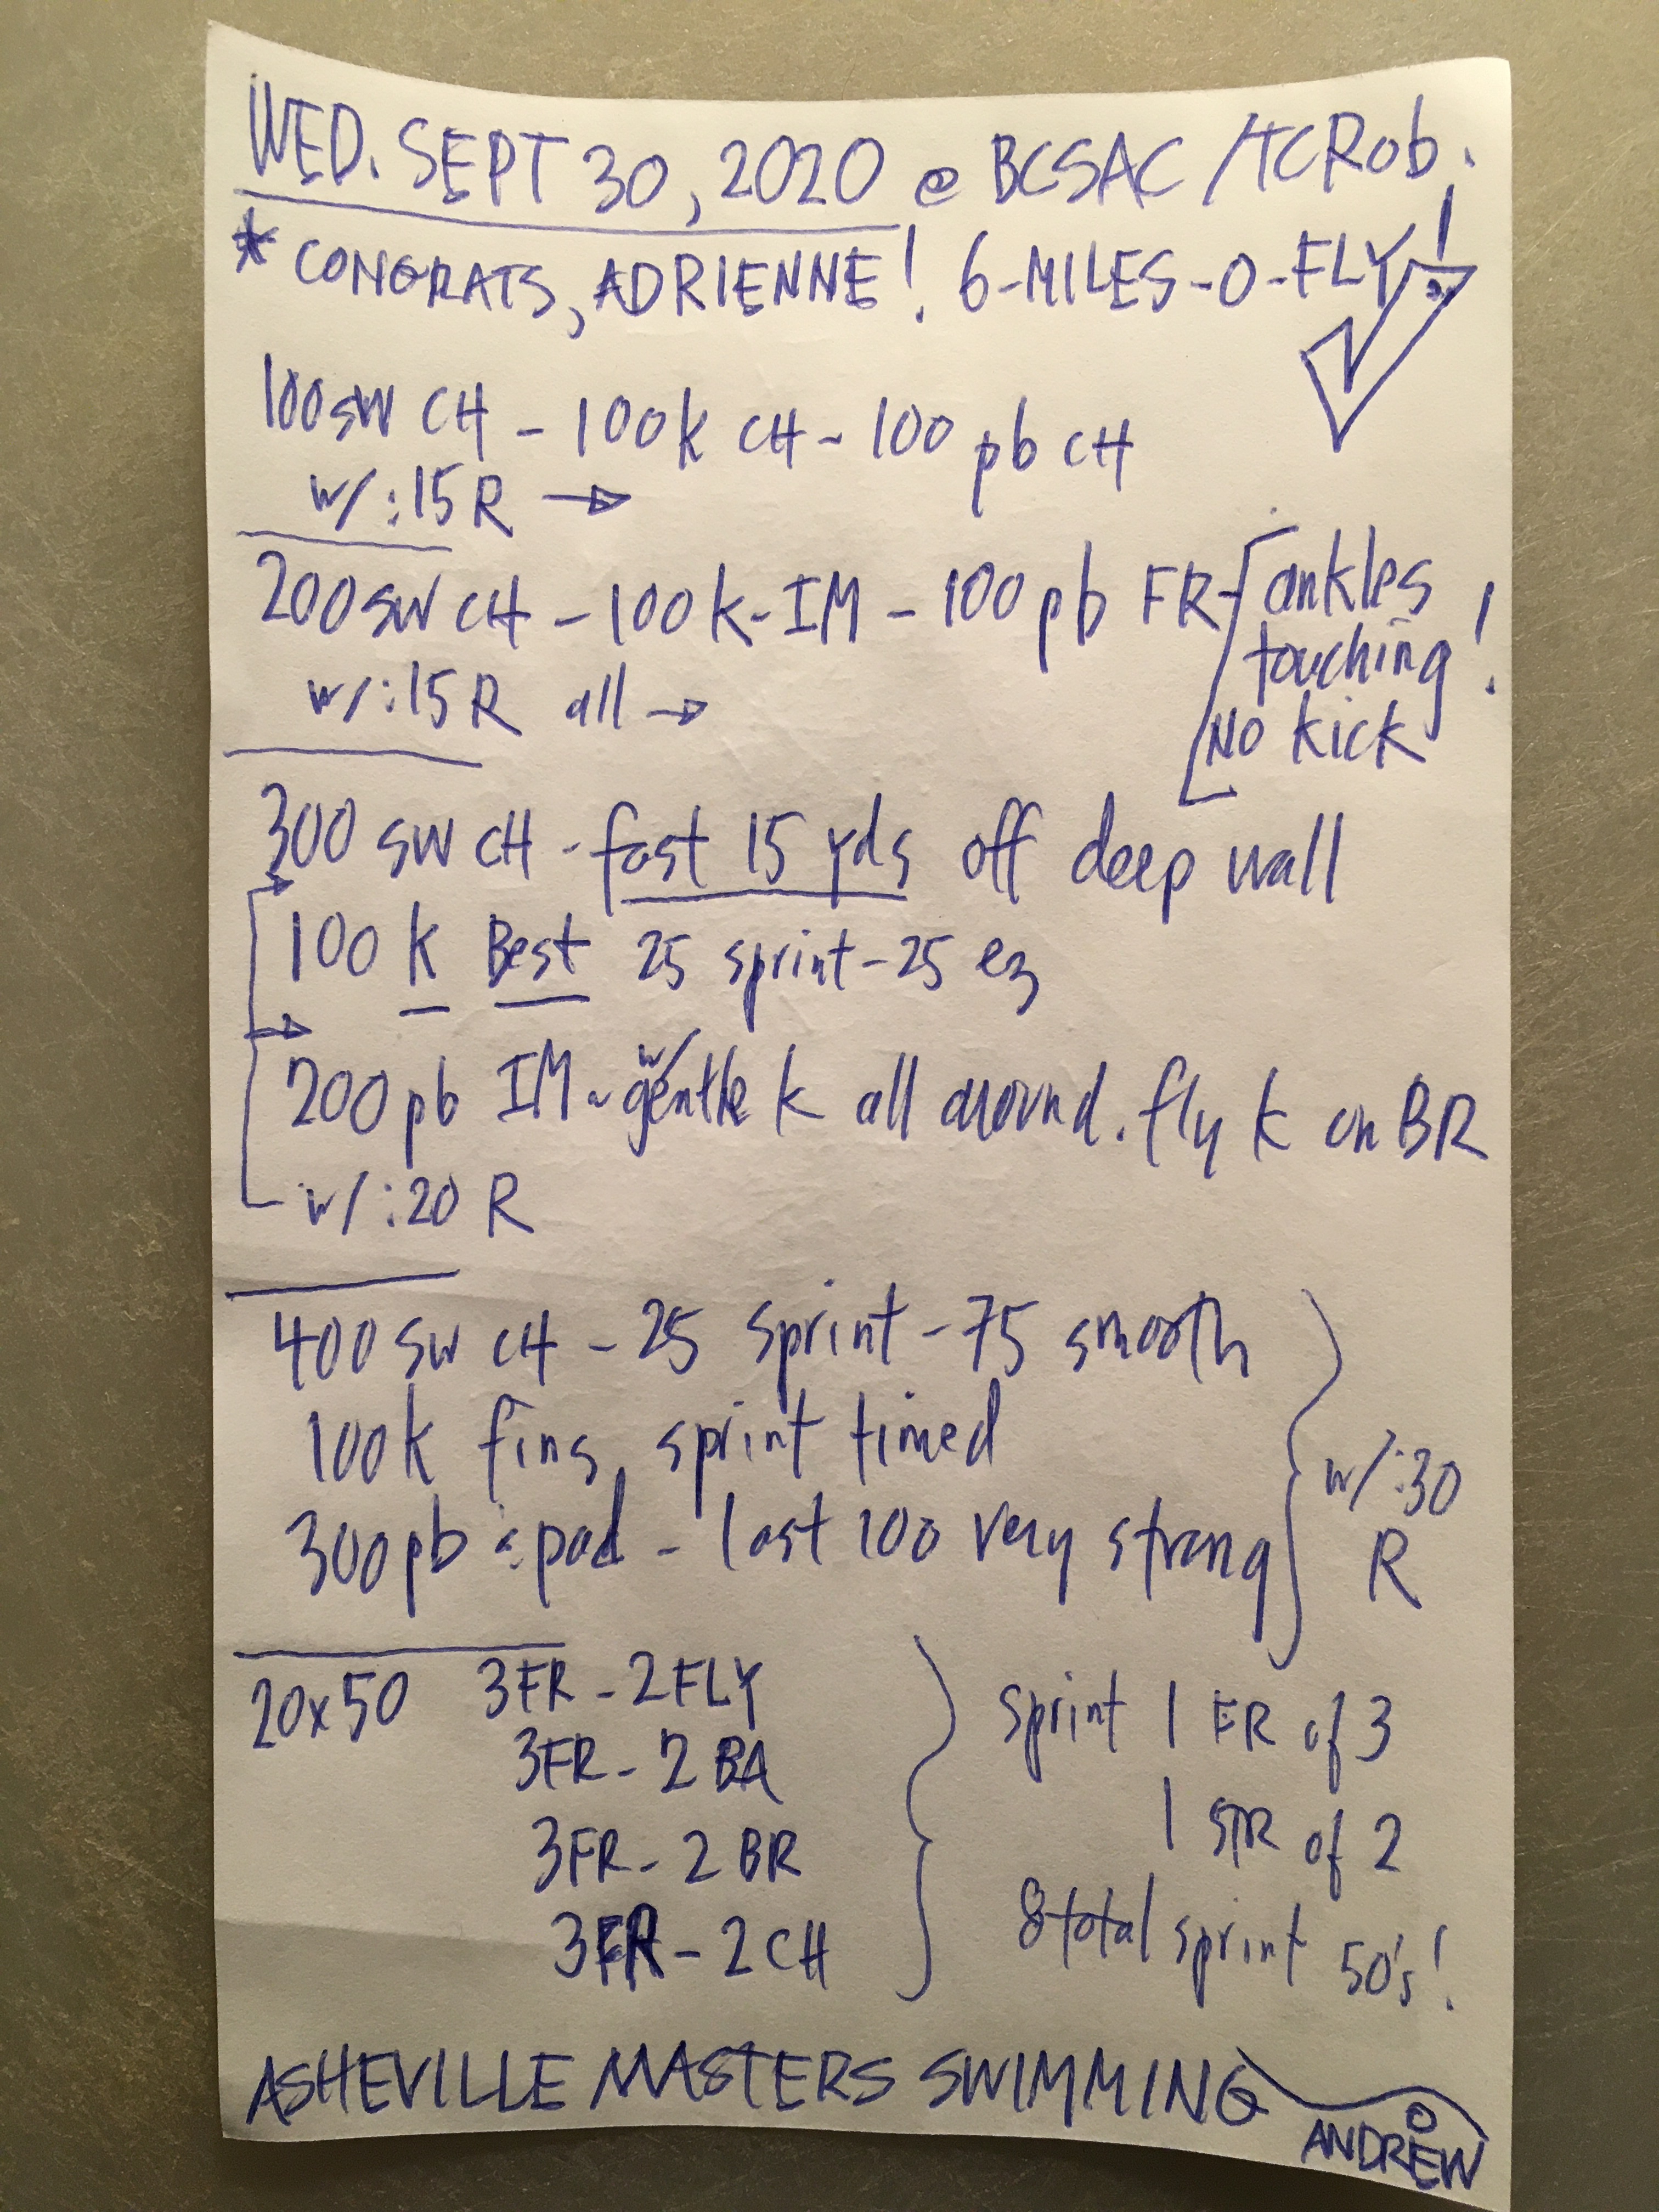 WED. SEPT 30, 2020 @ BCSAC / TCRob.
* CONGRATS, ADRIENNE! 6-MILES-O-FLY!
100 SW CH - 100 k CH - 100 pb CH
w/ :15 R →
200 SW CH - 100 k - IM - 100 pb FR - [ankles
touching!
NO kick]
w/ :15 R all →
300 SW CH - fast 15 yds off deep wall
100 k Best 25 sprint - 25 ez
200 pb IM ~ w/ gentle k all around. fly k on BR
w/ :20 R
400 SW CH - 25 sprint - 75 smooth
100 k fins, sprint timed
300 pb & pad - last 100 very strong
w/ :30
R
20x50 3FR - 2 FLY
3FR - 2 BA
3FR - 2 BR
3FR - 2 CH
sprint 1 FR of 3
1 STR of 2
8 total sprint 50's!
ASHEVILLE MASTERS SWIMMING
ANDREW